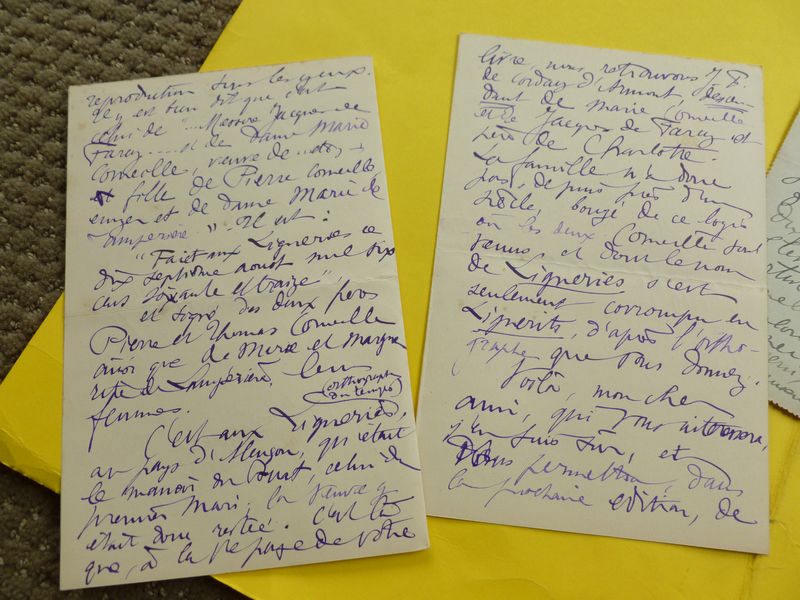 reproduction sous les yeux.
Il y est bien dit que c'est
celui de "... Messire Jacques de
Farcy.... et de Dame Marie
Corneille, veuve de
fille de Pierre Corneille
et de Dame Marie de
Lampérière." Il est :
"Fait aux Ligneries ce
dix septième aoust mil six
cens soixante et traize",
et signé des deux
Pierre et Thomas Corneille
ainsi que de Marie et Margue
rite de Lampérière, leurs
femmes. (orthographe
du temps)
C'est aux Ligneries,
au pays d'Alençon, qu'était
le manoir du Buat celui du
premier mari, la veuve y
était donc restée. C'est là
que, à la page de votre
livre, nous retrouvons J. F.
de Corday d'Armont, descen
dant de Marie Corneille
et de Jacques de Farcy et
père de Charlotte.
La famille n'a donc
pas, depuis près d'un
siècle, bougé de ce logis
où les deux Corneille sont
venus, et dont le nom
de Ligneries s'est
seulement corrompu en
Lignerits, d'après l'ortho-
graphe que vous donnez.
Voilà, mon cher
ami, qui vous intéressera,
j'en suis sûr, et
vous permettra, dans
la prochaine édition, de